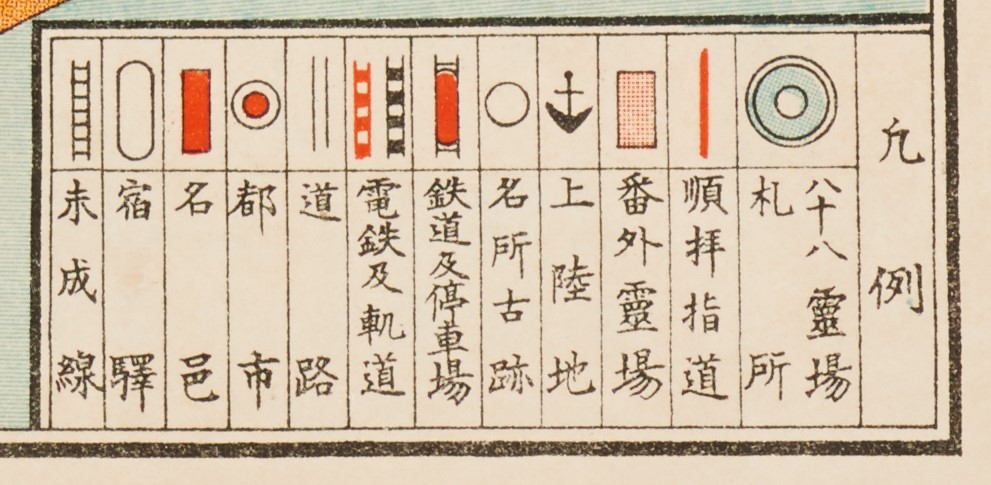 凡例
八十八靈場
札所
順拝指道
番外靈場
上陸地
名所古跡
鉄道及停車場
電鉄及軌道
道路
都市
名邑
宿驛
未成線